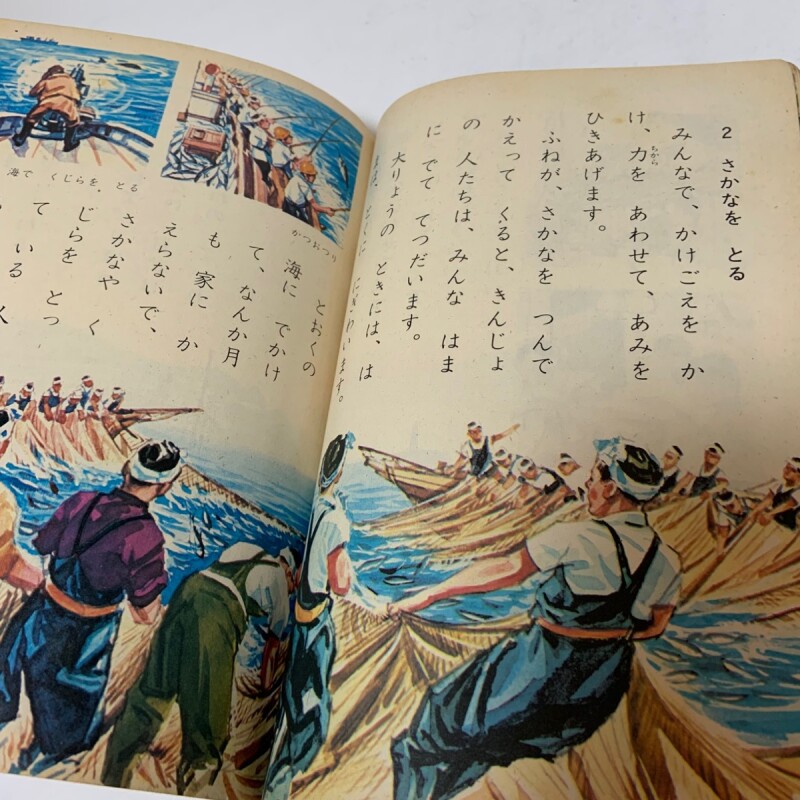 2 さかなを とる
みんなで、かけごえを か
け、力を あわせて、あみを
ちから
ひきあげます。
ふねが、さかなを つんで
かえって くると、きんじょ
の 人たちは、みんな はま
に でて てつだいます。
大りょうの ときには、は
にぎわいます。
かつおつり
海で くじらを とる。
とおくの
海に でかけ
て、なんか月
も 家に か
えらないで、
さかなや く
じらを とっ
て いる